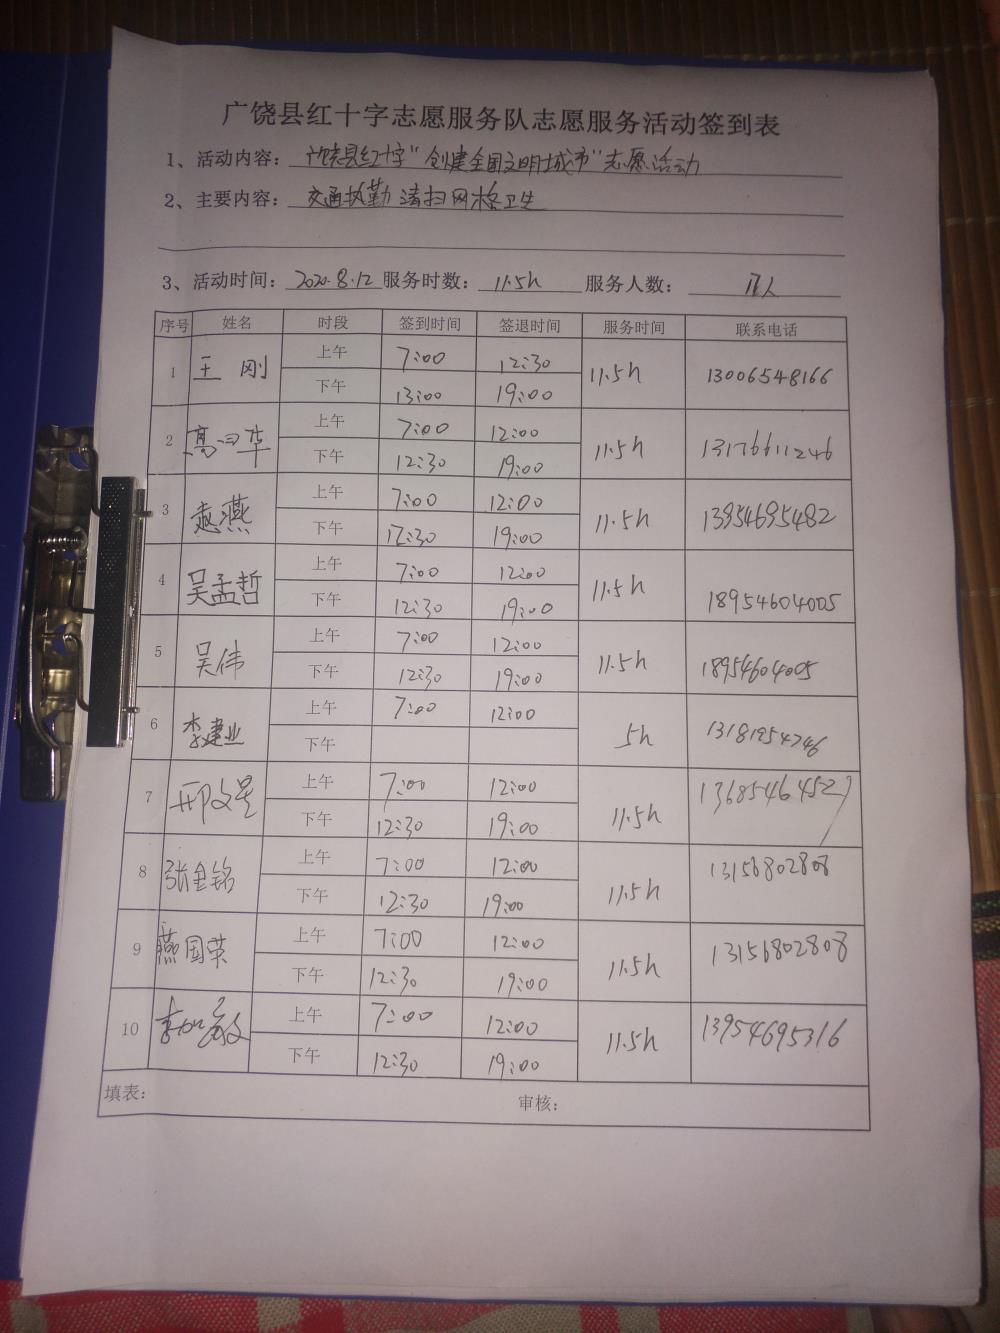 广饶县红十字志愿服务队志愿服务活动签到表
1、活动内容：广饶县红十字"创建全国文明城市"志愿活动
2、主要内容：交通执勤 清扫网格卫生
3、活动时间：2020.8.12 服务时数：11.5h 服务人数：人
序号 姓名 时段 签到时间 签退时间 服务时间 联系电话
1 王刚 上午 7:00 12:30 11.5h 13006548166
下午 13:00 19:00
2 高曰华 上午 7:00 12:00 11.5h 13176611246
下午 12:30 19:00
3 赵燕 上午 7:00 12:00 11.5h 13954695482
下午 12:30 19:00
4 吴孟哲 上午 7:00 12:00 11.5h 18954604005
下午 12:30 19:00
5 吴伟 上午 7:00 12:00 11.5h 18954604005
下午 12:30 19:00
6 李建业 上午 7:00 12:00 5h 13181954746
下午
7 邢文星 上午 7:00 12:00 11.5h 13685464527
下午 12:30 19:00
8 张金铭 上午 7:00 12:00 11.5h 13156802808
下午 12:30 19:00
9 燕国荣 上午 7:00 12:00 11.5h 13156802808
下午 12:30 19:00
10 上午 7:00 12:00 11.5h 13954695316
下午 12:30 19:00
填表： 审核：